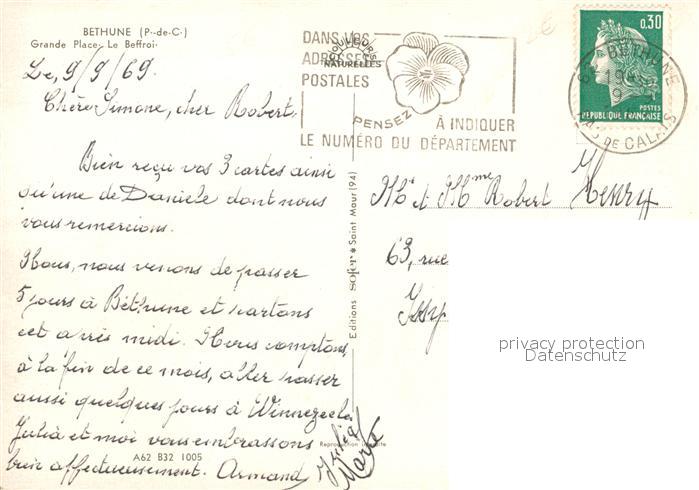 BETHUNE (P.-de-C.)
Grande Place. Le Beffroi.
Le, 9/9/69.
Chère Simone, cher Robert,
Bien reçu vos 3 cartes ainsi
qu'une de Danièle dont nous
vous remercions.
Nous, nous venons de passer
5 jours à Béthune et partons
cet après midi. Nous comptons,
à la fin de ce mois, aller passer
aussi quelques jours à Winnezeele
Julia et moi vous embrassons
bien affectueusement. Armand
Julia
A62 B32 1005
Reproduction interdite
Editions sofer * Saint Maur (94)
DANS VOS
ADRESSES
POSTALES
COULEURS
NATURELLES
PENSEZ
À INDIQUER
LE NUMÉRO DU DÉPARTEMENT
0,30
POSTES
REPUBLIQUE FRANÇAISE
62 BETHUNE
PAS DE CALAIS
Mr et Mme Robert Henry
63, rue
Issy
privacy protection
Datenschutz